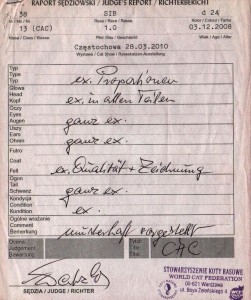 RAPORT SĘDZIOWSKI / JUDGE'S REPORT / RICHTERBERICHT
38 SIB d 24
13 (CAC) 1.0 03.12.2008
Częstochowa 28.03.2010
Typ
Type
Typ
ex. Proportionen
Głowa
Head
Kopf
ex. in allen Teilen
Oczy
Eyes
Augen
ganz ex.
Uszy
Ears
Ohren
ganz ex.
Futro
Coat
Fell
ex. Qualität + Zeichnung
Ogon
Tail
Schwanz
ganz ex.
Kondycja
Condition
Kondition
ex.
Uwagi
Comment
Bemerkung
musterhaft vorgestellt
Ocena
Judgement
Bewertung
CAC
SĘDZIA / JUDGE / RICHTER
STOWARZYSZENIE KOTY RASOWE
WORLD CAT FEDERATION
00-621 Warszawa